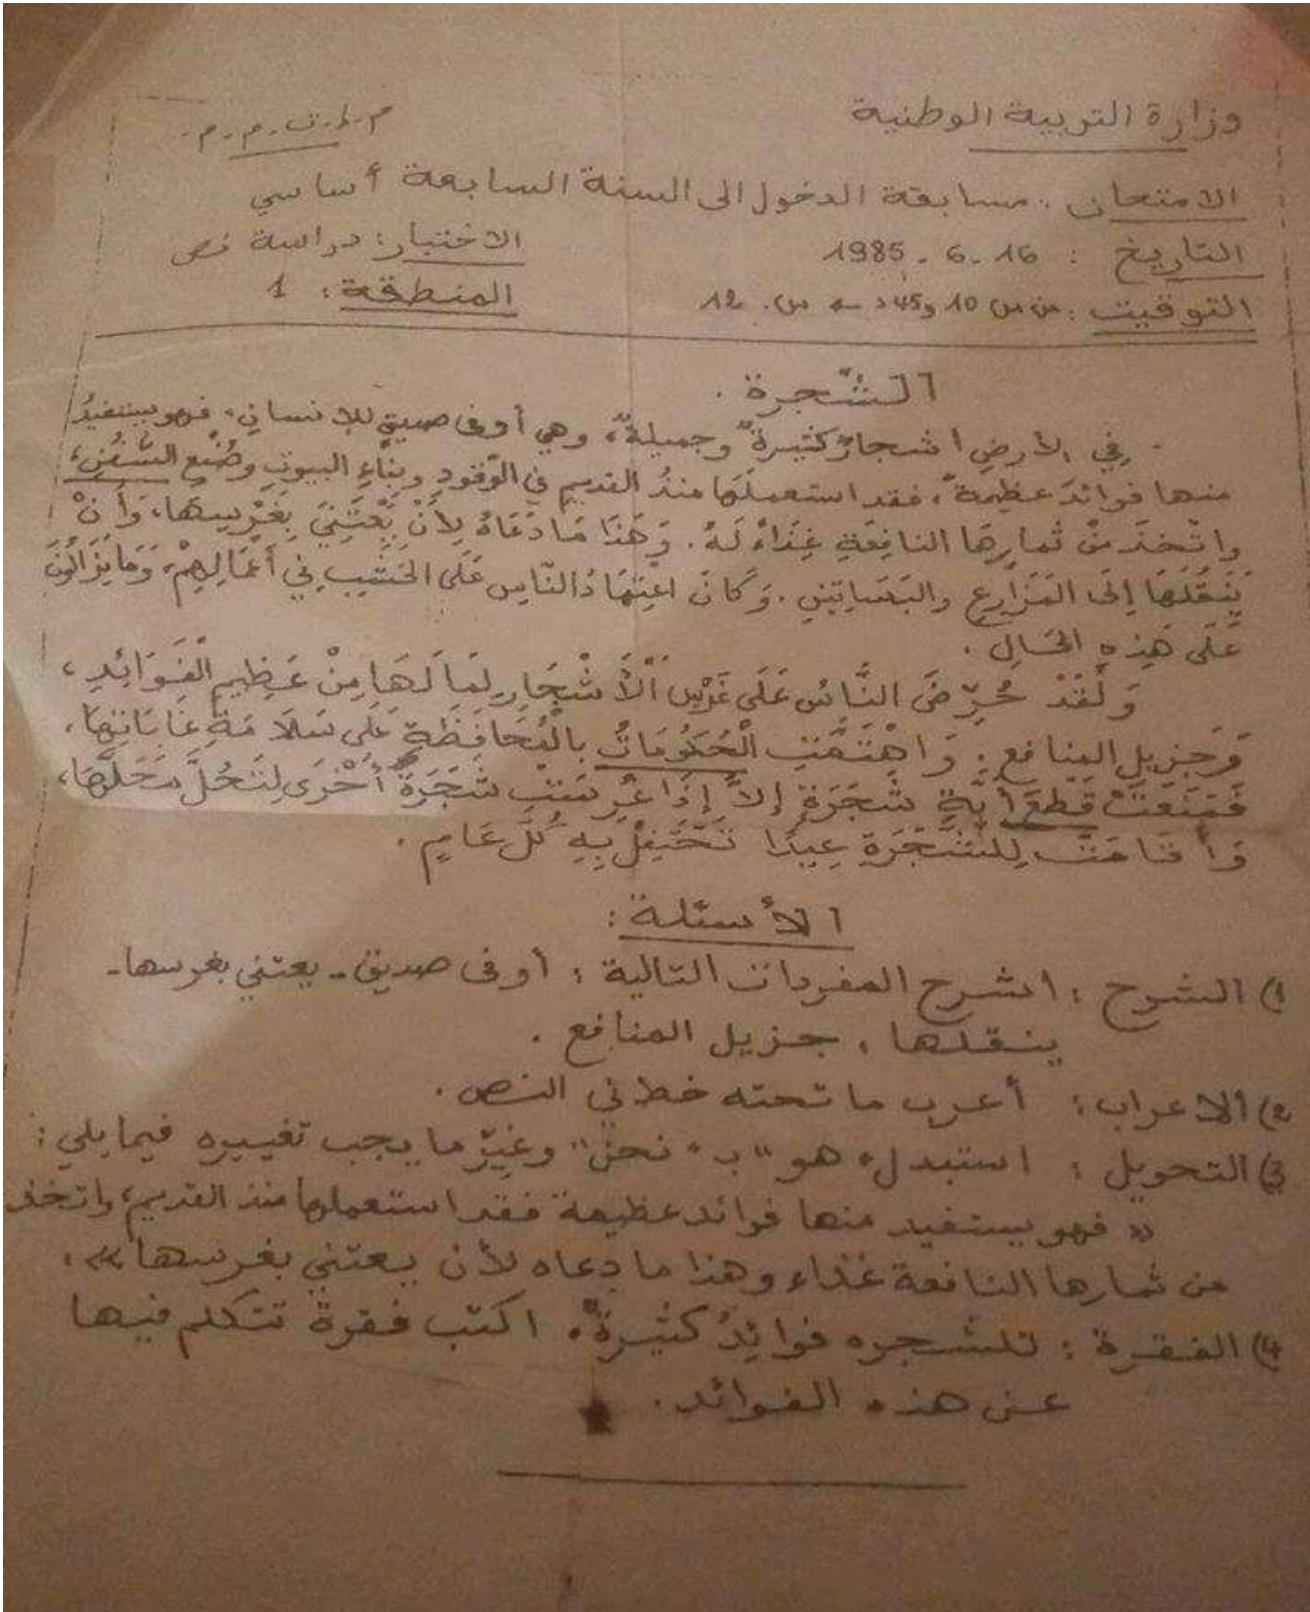 وزارة التربية الوطنية
م.ط.ت.م.م.
الامتحان : مسابقة الدخول الى السنة السابعة أساسي
التاريخ : 16 . 6 . 1985
الاختبار : دراسة نص
التوقيت : من س 10 و45 د ← س . 12
المنطقة : 1
الشّجرة .
. فِي الأرضِ أشجارٌ كثيرةٌ وجميلةٌ، وهي أوفى صديقٍ للإنسانِ، فهو يستفيدُ
منها فوائدَ عظيمةً، فقد استعملَها منذُ القديمِ في الوَقودِ وبِناءِ البيوتِ وصُنْعِ السُّفُنِ،
واتّخذَ مِنْ ثمارِهَا النافِعَةِ غِذَاءً لَهُ. وَهَذَا مَا دَعَاهُ لِأَنْ يَعْتَنِيَ بِغَرْسِهَا، وَأَنْ
يَنْقُلَهَا إِلَى المَزَارِعِ والبَسَاتِينِ. وَكَانَ اعْتِمَادُ النَّاسِ عَلَى الخَشَبِ فِي أَعْمَالِهِمْ، وَمَا يَزَالُونَ
عَلَى هَذِهِ الحَالِ .
وَلَقَدْ حُرِّضَ النَّاسُ عَلَى غَرْسِ اَلْأَشْجَارِ لِمَا لَهَا مِنْ عَظِيمِ الْفَوَائِدِ ،
وَجَزِيلِ المنافع . وَاهْتَمَّتِ الْحُكُومَاتُ بالْمُحَافَظَةِ عَلَى سَلَامَةِ غَابَاتِهَا،
فَمَنَعَتْ قَطْعَ أَيَّةِ شَجَرَةٍ إِلاَّ إِذَا غُرِسَتْ شَجَرَةٌ أُخْرَى لِتَحُلَّ مَحَلَّهَا،
وَأَقَامَتْ لِلشَّجَرَةِ عِيدًا تَحْتَفِلُ بِهِ كُلَّ عَامٍ .
الأسئلة :
1) الشرح : اشرح المفردات التالية : أوفى صديق - يعتني بغرسها -
ينقلها ، جزيل المنافع .
2) الاعراب : أعرب ما تحته خط في النص .
3) التحويل : استبدل "هو" بـ "نحن" وغيّر ما يجب تغييره فيما يلي :
« فهو يستفيد منها فوائد عظيمة فقد استعملها منذ القديم، واتخذ
من ثمارها النافعة غذاء وهذا ما دعاه لأن يعتني بغرسها » .
4) الفقرة : للشجره فوائدُ كثيرةٌ. اكتب فقرة تتكلم فيها
عن هذه الفوائد .